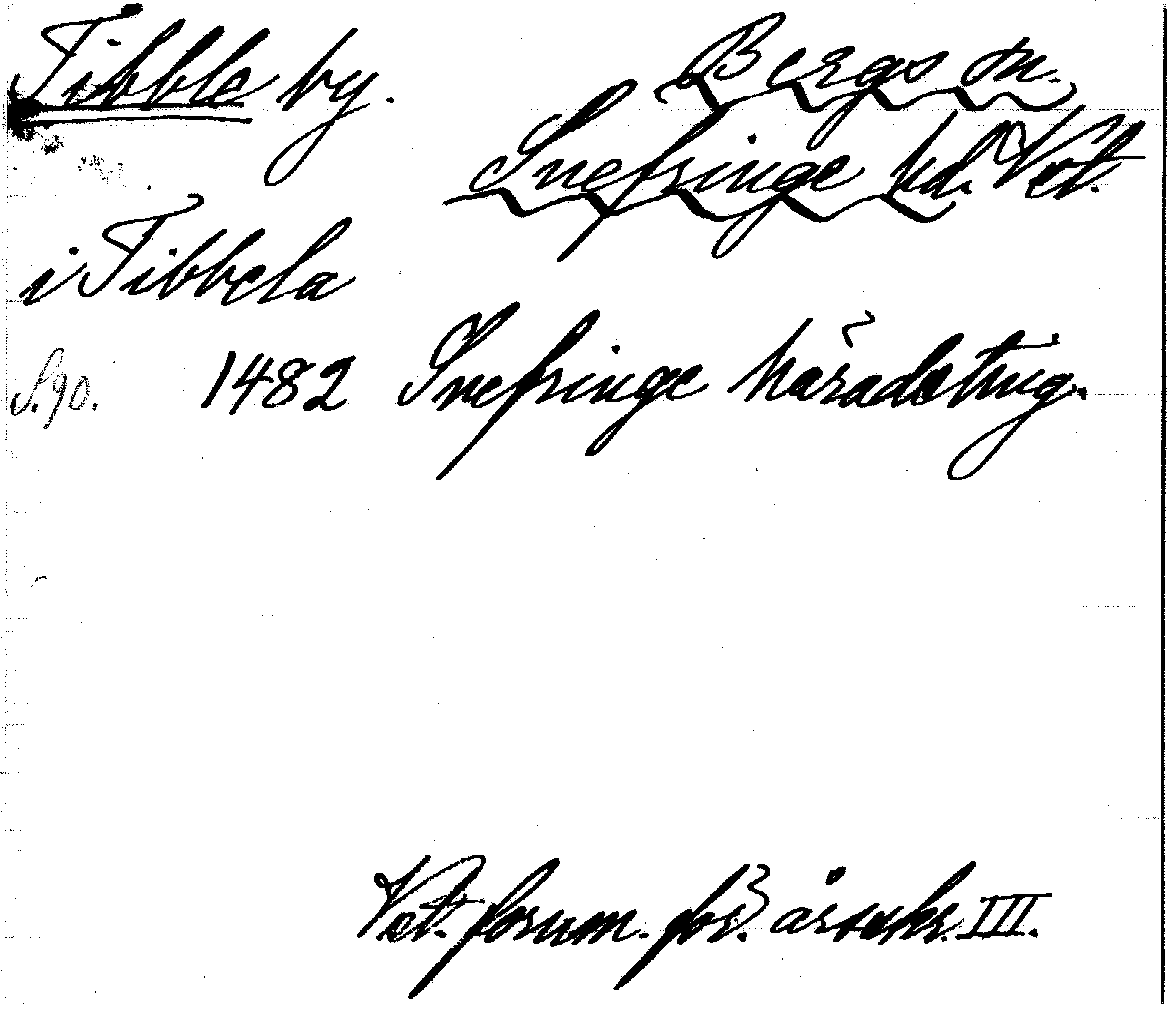 Tibble by.
Bergs sn.
Snefringe hd. Vet.
i Tibbela
S. 90. 1482 Snefringe häradsting.
Vet. fornm. för. årsskr. III.